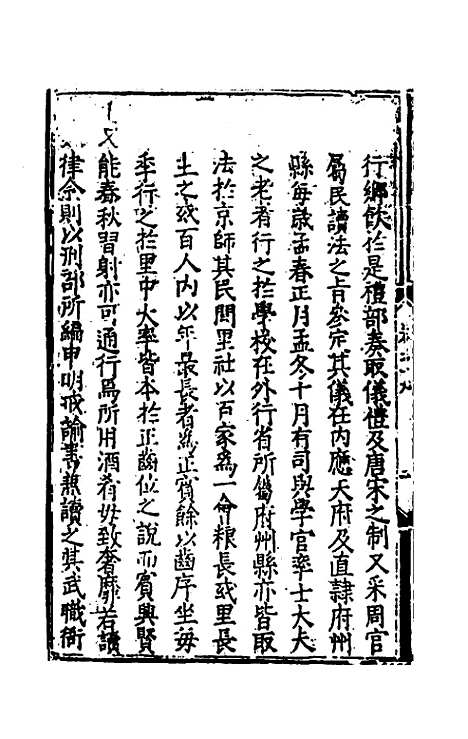 行鄉飲於是禮部奏取儀禮及唐宋之制又采周官
屬民讀法之旨參定其儀在內應天府及直隸府州
縣每歲孟春正月孟冬十月有司與學官率士大夫
之老者行之於學校在外行省所屬府州縣亦皆取
法於京師其民間里社以百家為一會粮長或里長
主之或百人內以年最長者為正賓餘以齒序坐每
季行之於里中大率皆本於正齒位之說而賓興賢
能春秋習射亦可通行焉所用酒肴毋致奢靡若讀
律令則以刑部所編申明戒諭書兼讀之其武職衙